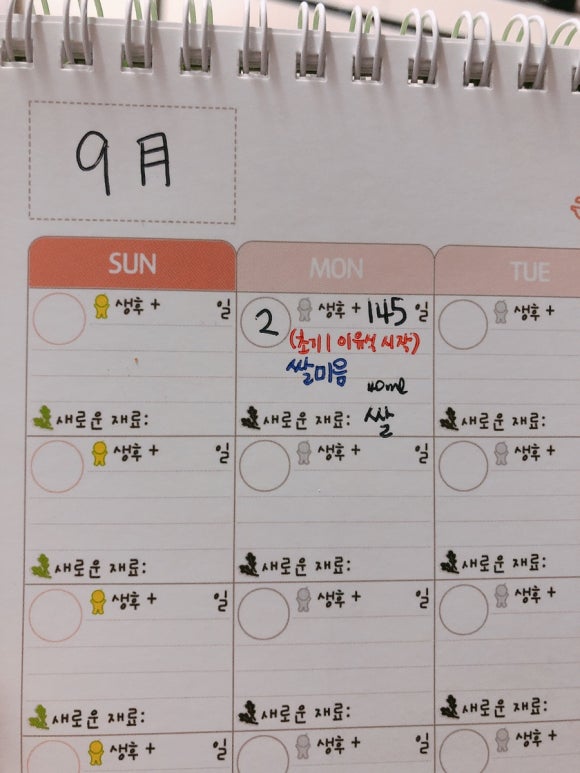 9月
SUN MON TUE
생후 + 일 2 생후 + 145 일 생후 +
(초기1 이유식 시작)
쌀미음
40ml
새로운 재료: 새로운 재료: 쌀 새로운 재료:
생후 + 일 생후 + 일 생후 +
새로운 재료: 새로운 재료: 새로운 재료:
생후 + 일 생후 + 일 생후 +
새로운 재료: 새로운 재료: 새로운 재료:
생후 + 일 생후 + 일 생후 +